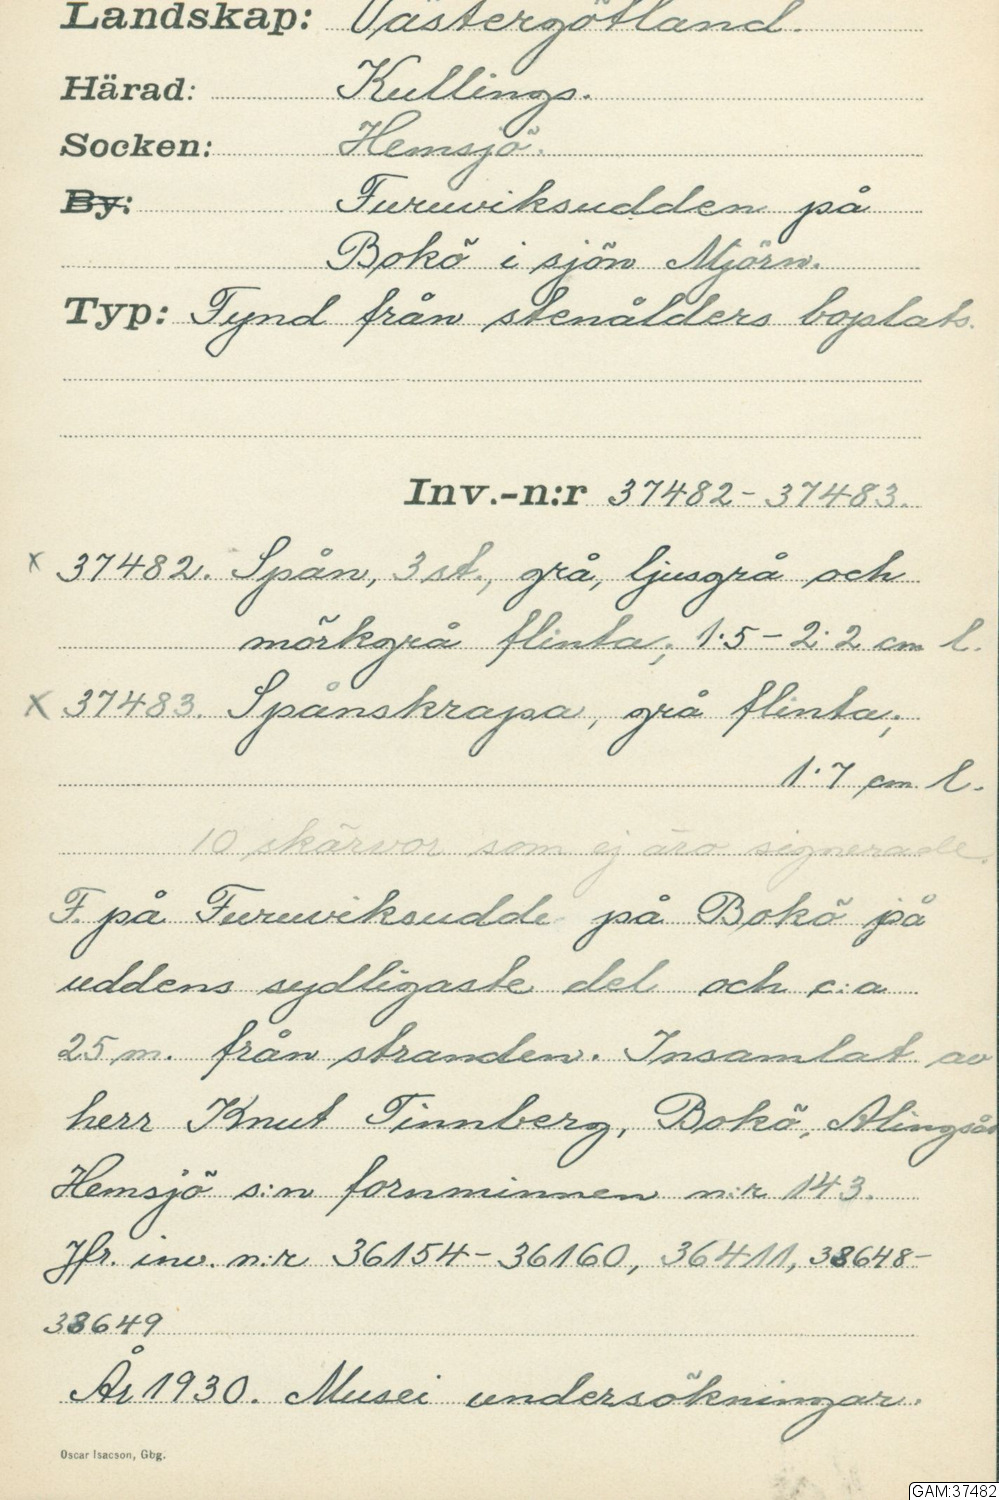 Landskap: Västergötland.
Härad: Kullings.
Socken: Hemsjö.
By: Furuviksudden på
Bokö i sjön Mjörn.
Typ: Fynd från stenålders boplats.
Inv.-n:r 37482-37483.
x 37482. Spån, 3 st., grå, ljusgrå och
mörkgrå flinta; 1.5-2.2 cm l.
x 37483. Spånskrapa, grå flinta;
1.7 cm l.
10 skärvor som ej äro signerade.
F. på Furuviksudde på Bokö på
uddens sydligaste del och c:a
25 m. från stranden. Insamlat av
herr Knut Tinnberg, Bokö, Alingsås
Hemsjö s:n fornminnen n:r 143.
Jfr. inv. n:r 36154-36160, 36411, 38648-
38649
År 1930. Musei undersökningar.
Oscar Isacson, Gbg.
GAM:37482